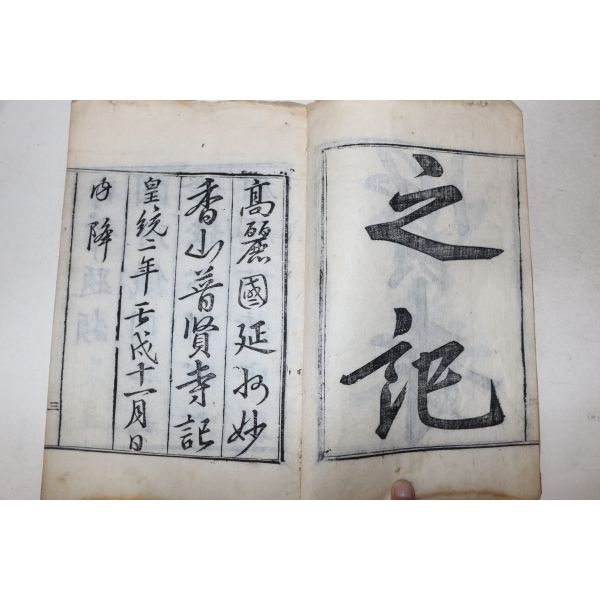 之記
高麗國延州妙
香山普賢寺記
皇統二年壬戌十一月日
內降